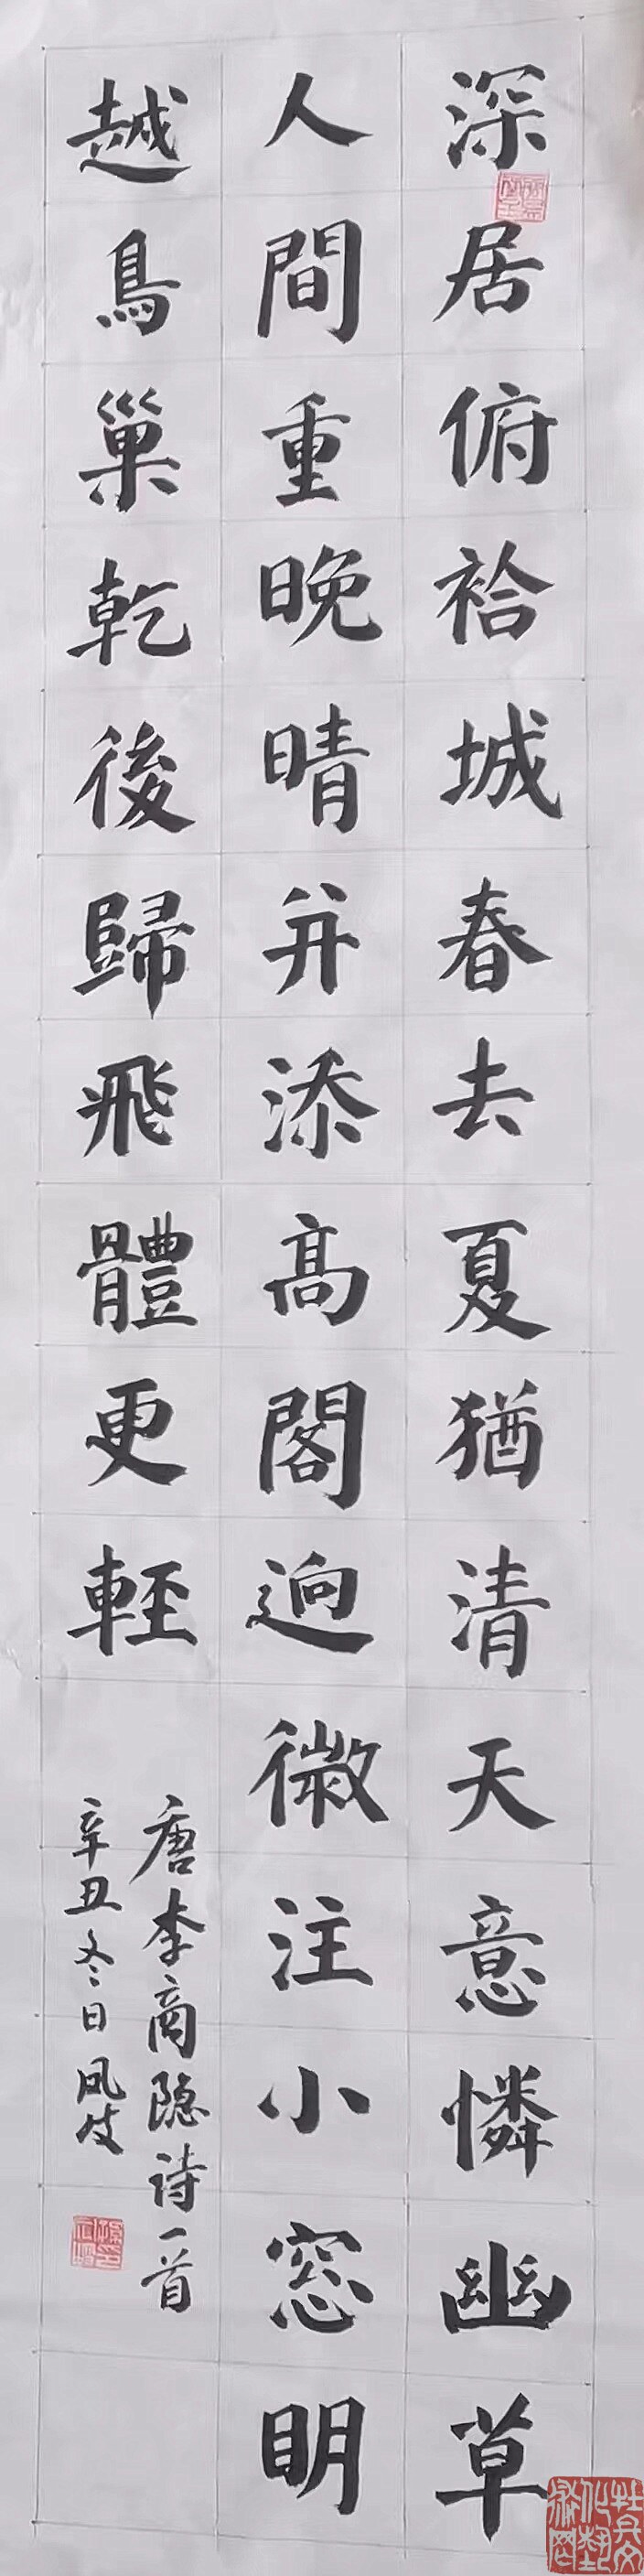 深居俯袷城春去夏猶清天意憐幽草
人間重晚晴并添高閣逈微注小窓明
越鳥巢乾後歸飛體更輕
唐李商隐诗一首
辛丑冬日凤